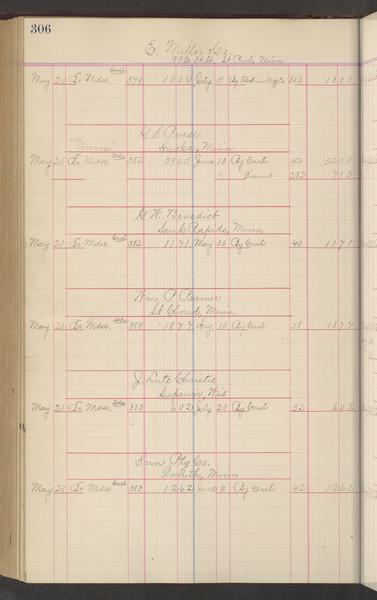 306
E. Miller & Co.
St. Paul, Minn.
May 20 To Mdse. 379 1000 July 19 By Mfg Co 1000
Pease
"Union" Anoka, Minn.
May 21 To Mdse 382 5965 June 10 By Cash 43 5250
" Discount 283 715
G. W. Benedict
Sauk Rapids, Minn
May 21 To Mdse. Cash 382 1171 May 30 By Cash 40 1171
Wm. P. Reamer
St. Cloud, Minn.
May 21 To Mdse. 383 1877 Aug 10 By Cash 58 1877
J. Lute Christie
Superior, Wis
May 21 To Mdse. 383 602 July 23 By Cash 52 602
Ptg Co.
Duluth, Minn.
May 21 To Mdse. 383 1262 June 6 By Cash 42 1262